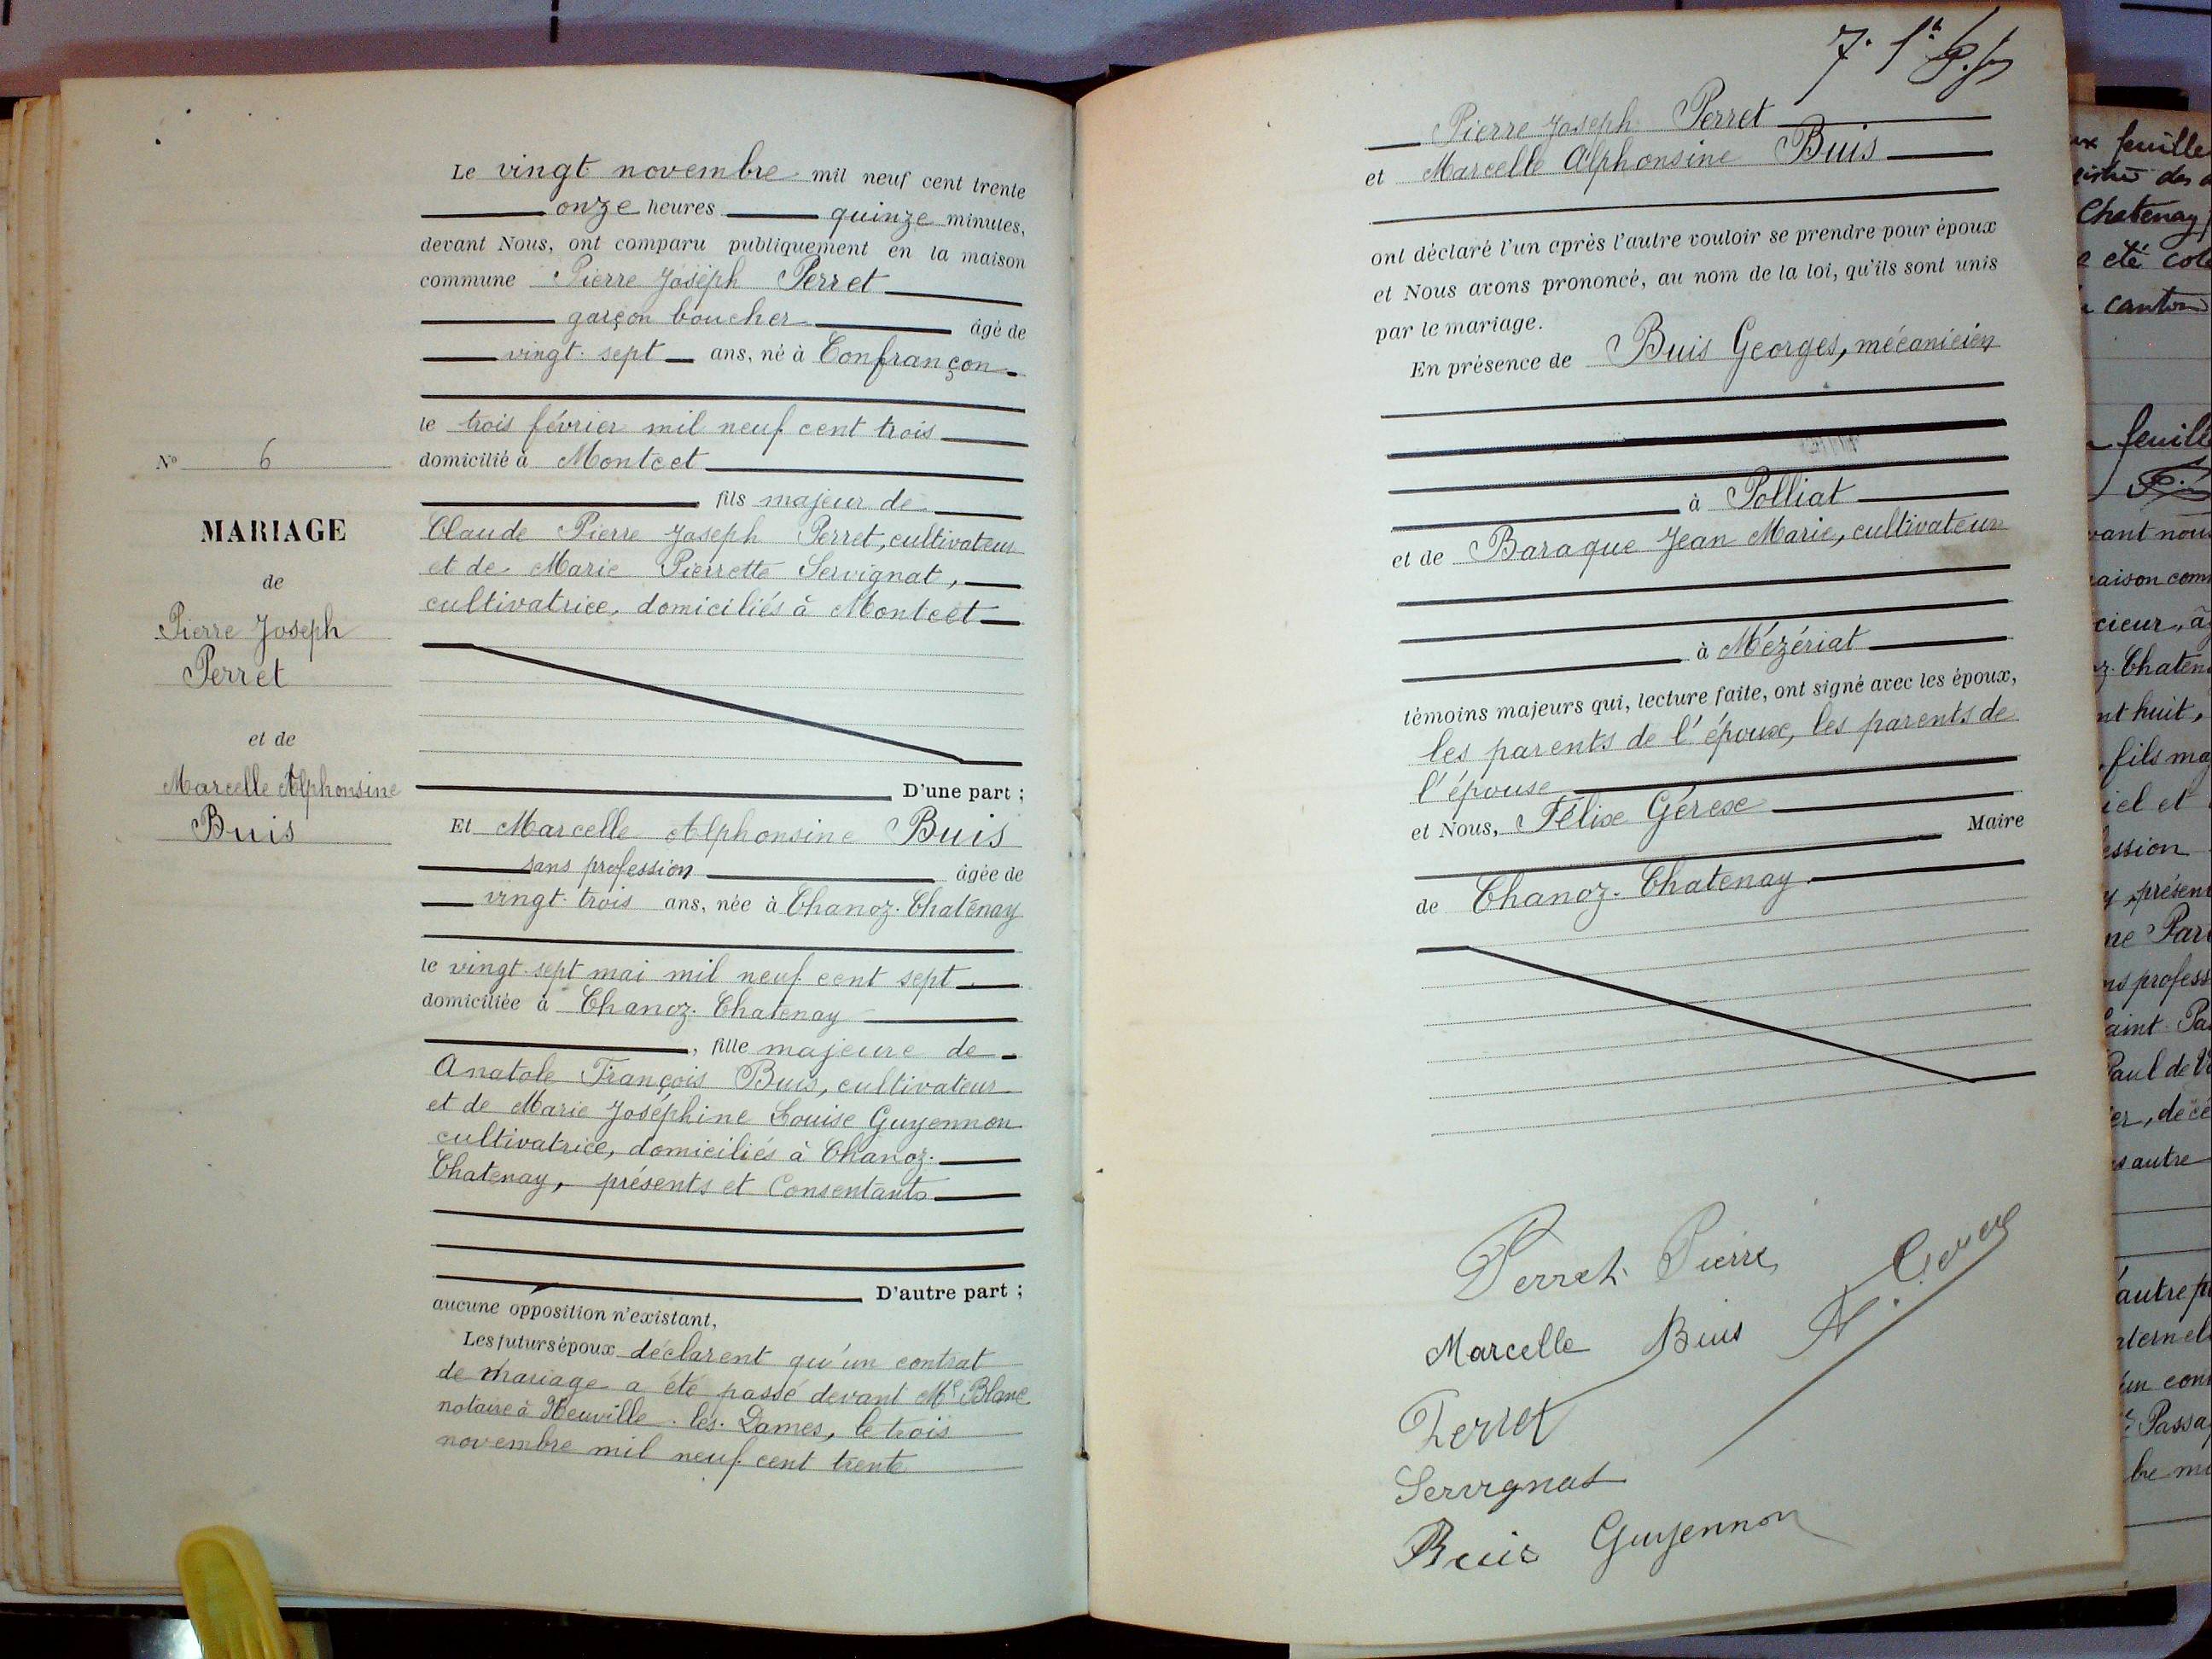 Le vingt novembre mil neuf cent trente
onze heures quinze minutes,
devant Nous, ont comparu publiquement en la maison
commune Pierre Joseph Perret
garçon boucher âgé de
vingt-sept ans, né à Confrançon
le trois février mil neuf cent trois
domicilié à Montcet
fils majeur de
Claude Pierre Joseph Perret, cultivateur
et de Marie Pierrette Servignat,
cultivatrice, domiciliés à Montcet
D'une part ;
Et Marcelle Alphonsine Buis
sans profession âgée de
vingt-trois ans, née à Chanoz-Chatenay
le vingt-sept mai mil neuf cent sept
domiciliée à Chanoz-Chatenay
, fille majeure de
Anatole François Buis, cultivateur
et de Marie Joséphine Louise Guyennon
cultivatrice, domiciliés à Chanoz-
Chatenay, présents et Consentants
D'autre part ;
aucune opposition n'existant,
Les futurs époux déclarent qu'un contrat
de mariage a été passé devant Me Blanc
notaire à Neuville-les-Dames, le trois
novembre mil neuf cent trente
No 6
MARIAGE
de
Pierre Joseph
Perret
et de
Marcelle Alphonsine
Buis
7.
Pierre Joseph Perret
et Marcelle Alphonsine Buis
ont déclaré l'un après l'autre vouloir se prendre pour époux
et Nous avons prononcé, au nom de la loi, qu'ils sont unis
par le mariage.
En présence de Buis Georges, mécanicien
à Polliat
et de Baraque Jean Marie, cultivateur
à Mézériat
témoins majeurs qui, lecture faite, ont signé avec les époux,
les parents de l'époux, les parents de
l'épouse
et Nous, Félix Gérex
Maire
de Chanoz-Chatenay
Perret Pierre
Marcelle Buis
Perret
Servignat
Buis Guyennon
ux feuille
Chatenay
canton
feuille
vant nous
aison com
cieur, âg
z-Chaten
nt huit,
fils ma
iel et
ession
y présent
ne Par
ns profess
aint-Pa
Paul de Va
er, décé
autre
autre pa
ternel
un con
Passa
bre mi